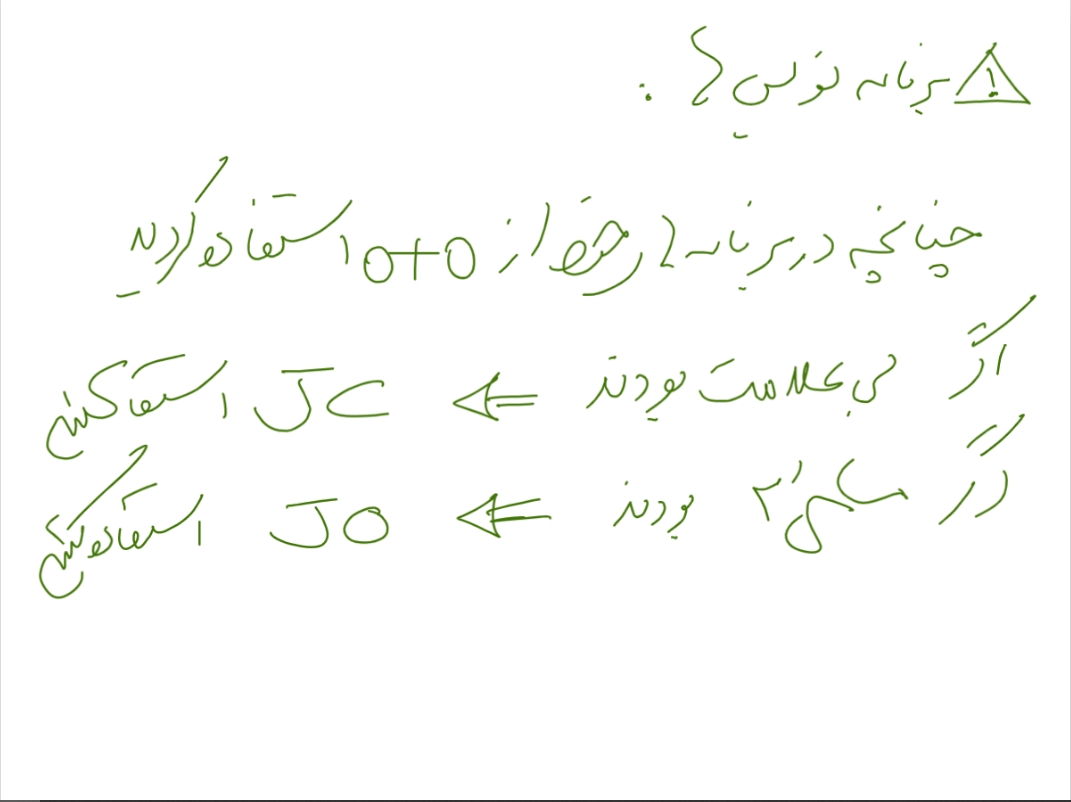 ⚠ برنامه نویسی :
چنانچه در برنامه از 0+0 استفاده کردید
اگر بی علامت بودند ⇐ JC استفا کنید
اگر مکمل ۲ بودند ⇐ JO استفاده کنید